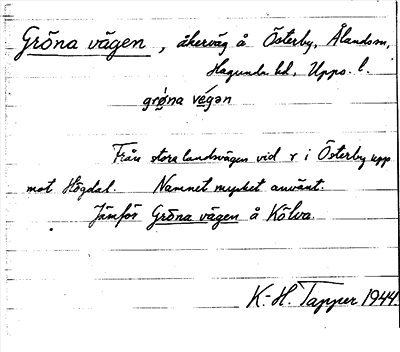 Gröna vägen, åkerväg å Österby, Ålands sn,
Hagunda hd, Upps. l.
grø̀na vé̱gən
Från stora landsvägen vid r i Österby upp
mot Högdal. Namnet mycket använt.
Jämför Gröna vägen å Kölva.
K.-H. Tapper 1944.